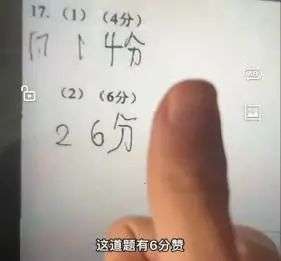 17.（1）（4分）
17 1 4分
（2）（6分）
2 6分
这道题有6分赞